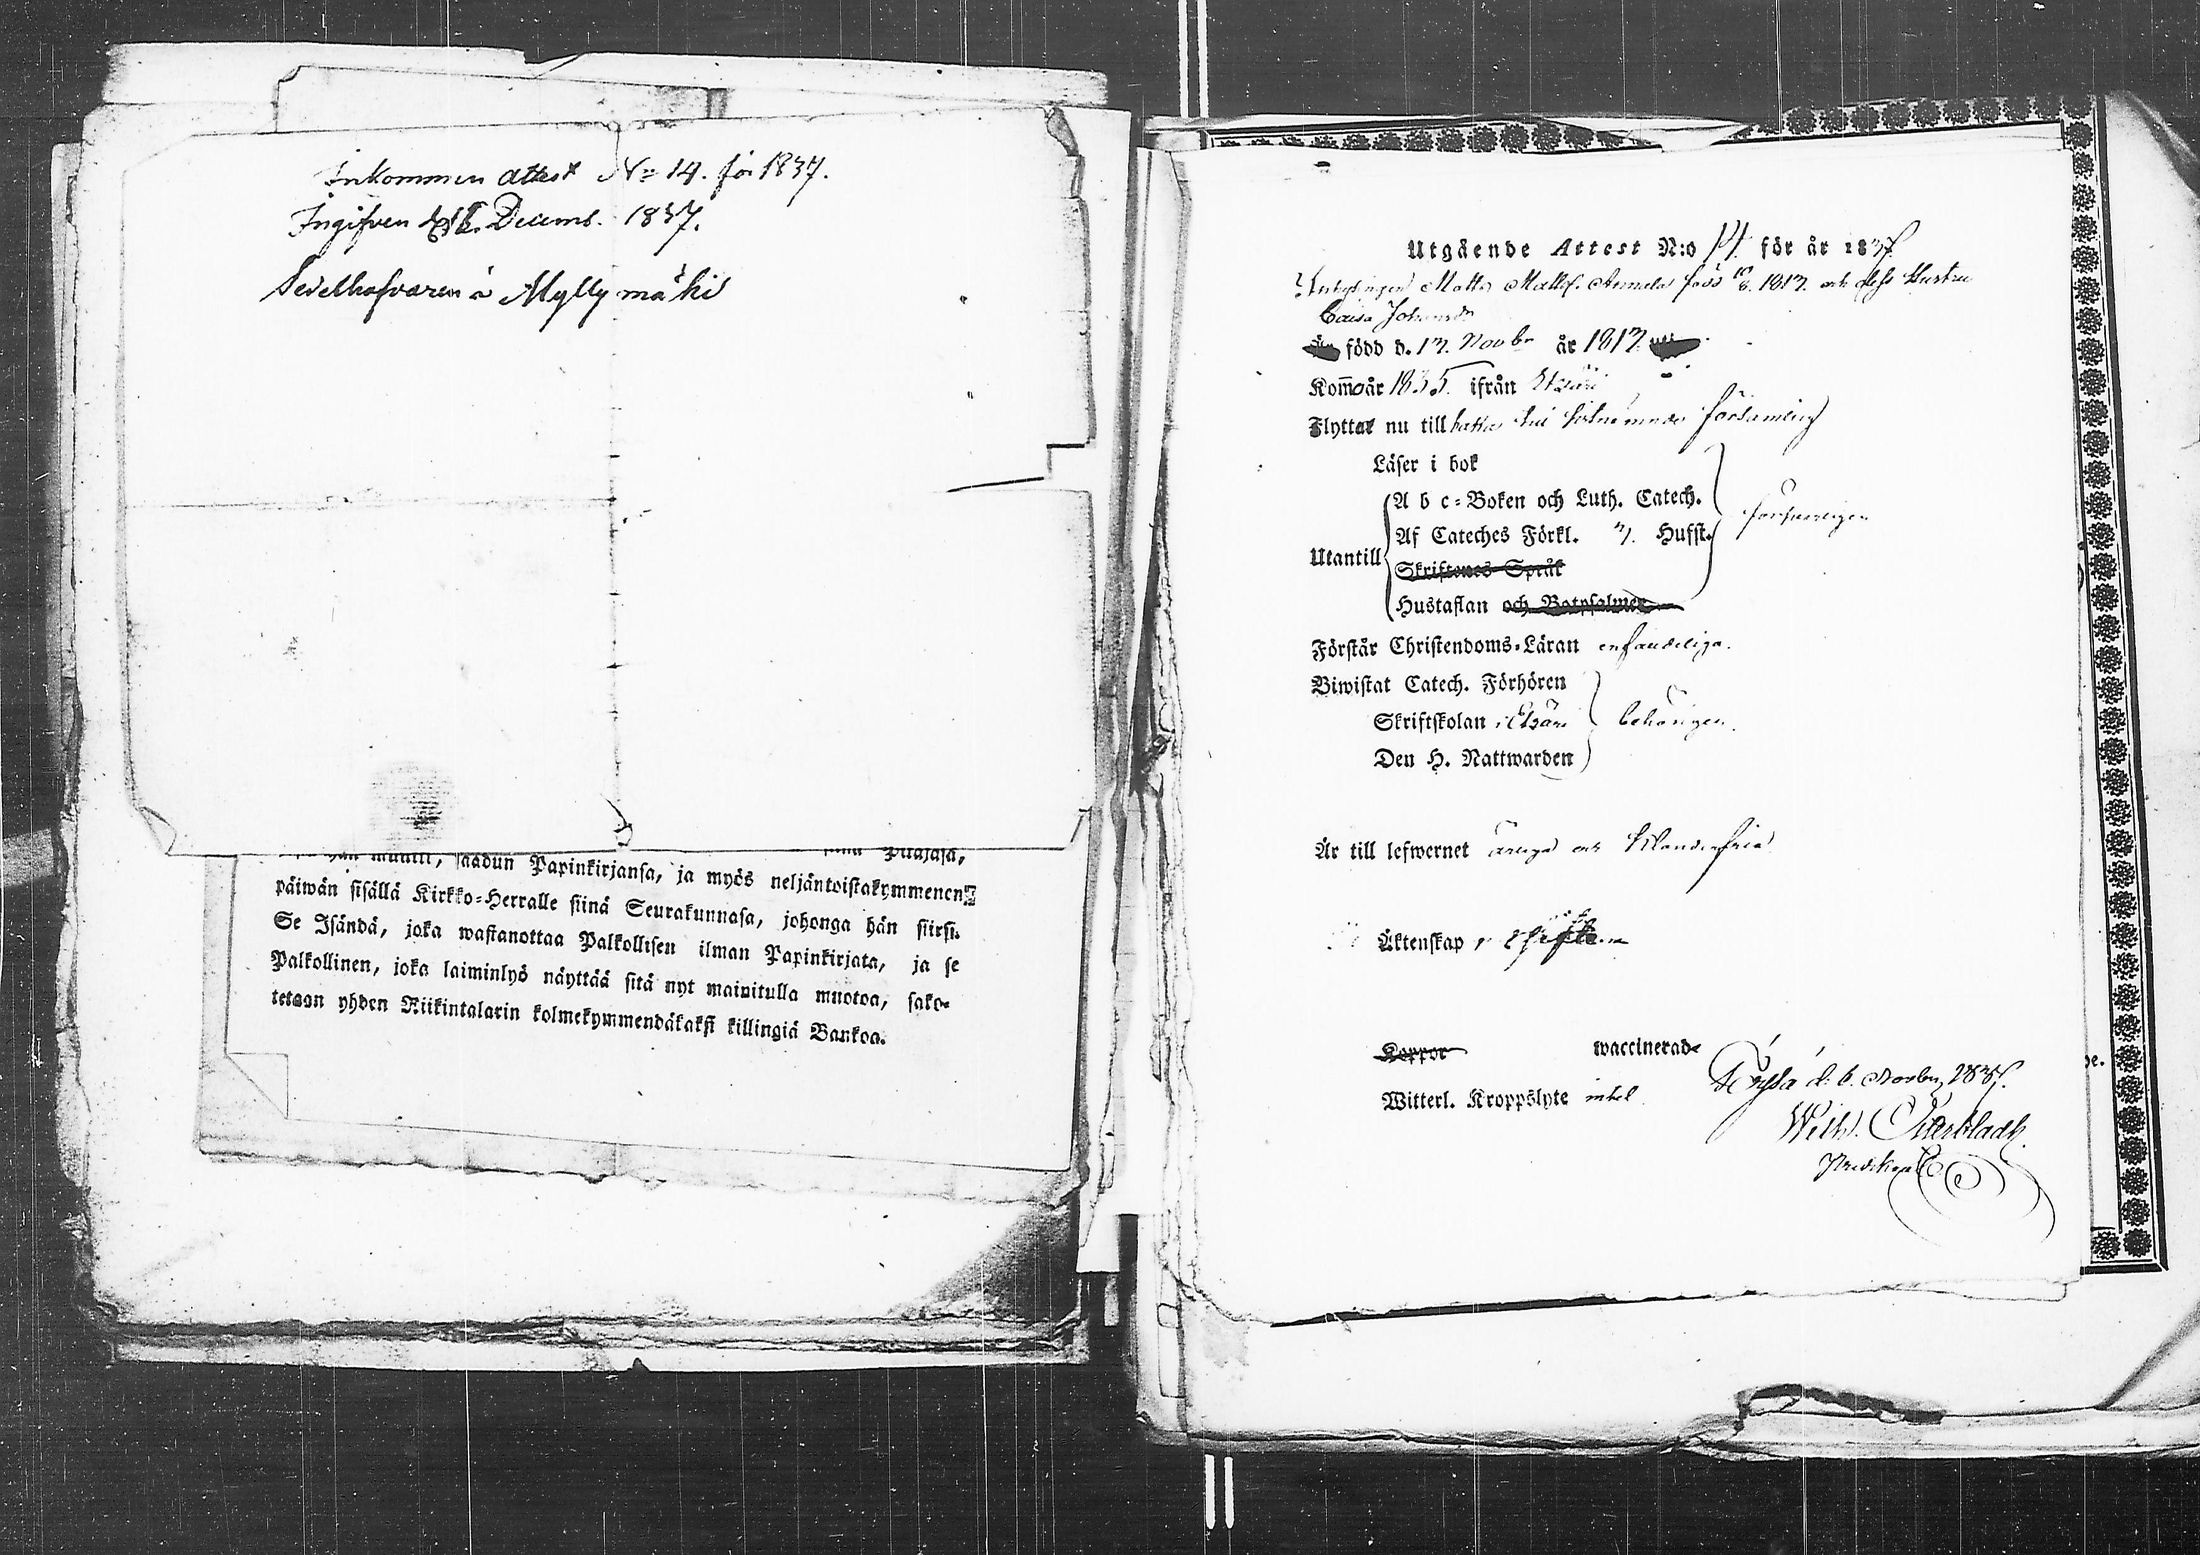 Inkommen attest No 14. för 1837.
Ingifven Decemb. 1837.
Sedelhafvaren å Myllymäki
muutti, saadun Papinkirjansa, ja myös neljäntoistakymmenen
päiwän sisällä Kirkko=Herralle siinä Seurakunnasa, johonga hän siirsi.
Se Isändä, joka wastanottaa Palkollisen ilman Papinkirjata, ja se
Palkollinen, joka laiminlyö näyttää sitä nyt mainitulla muotoa, sako-
tetaan yhden Riikintalarin kolmekymmendäkaksi killingiä Bankoa.
Utgående Attest N:o 14. för år 1837
Matts Mattss. född 1817. och dess Hustru
Caisa Johansdr
född d. 17. Novbr år 1817.
Kom år 1835. ifrån Etseri
Flyttar nu till baka till sistnämnde församling
Läser i bok
A b c=Boken och Luth. Catech.
Af Cateches Förkl. 7. Hufst.
försvarligen
Utantill
Skriftenes Språk
Hustaflan och Botpsalmer
Förstår Christendoms-Läran enfaldeliga.
Biwistat Catech. Förhören
Skriftskolan i Etseri
behörigen.
Den H. Nattwarden
Är till lefwernet ärliga och klanderfria
Äktenskap
Koppor waccinerade
Töysä d. 6. Novbr, 1837.
Witterl. Kroppslyte intet
Wilh. Österbladh
Predikant